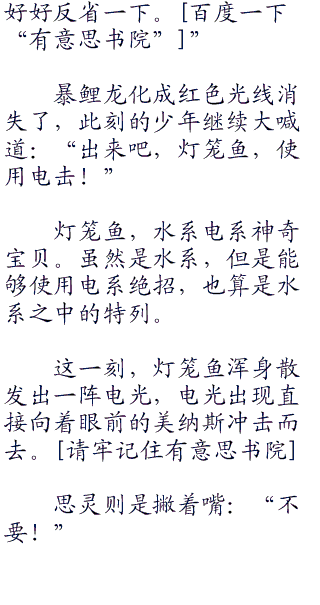 好好反省一下。[百度一下
“有意思书院”]”
暴鲤龙化成红色光线消
失了，此刻的少年继续大喊
道：“出来吧，灯笼鱼，使
用电击！”
灯笼鱼，水系电系神奇
宝贝。虽然是水系，但是能
够使用电系绝招，也算是水
系之中的特列。
这一刻，灯笼鱼浑身散
发出一阵电光，电光出现直
接向着眼前的美纳斯冲击而
去。[请牢记住有意思书院]
思灵则是撇着嘴：“不
要！”